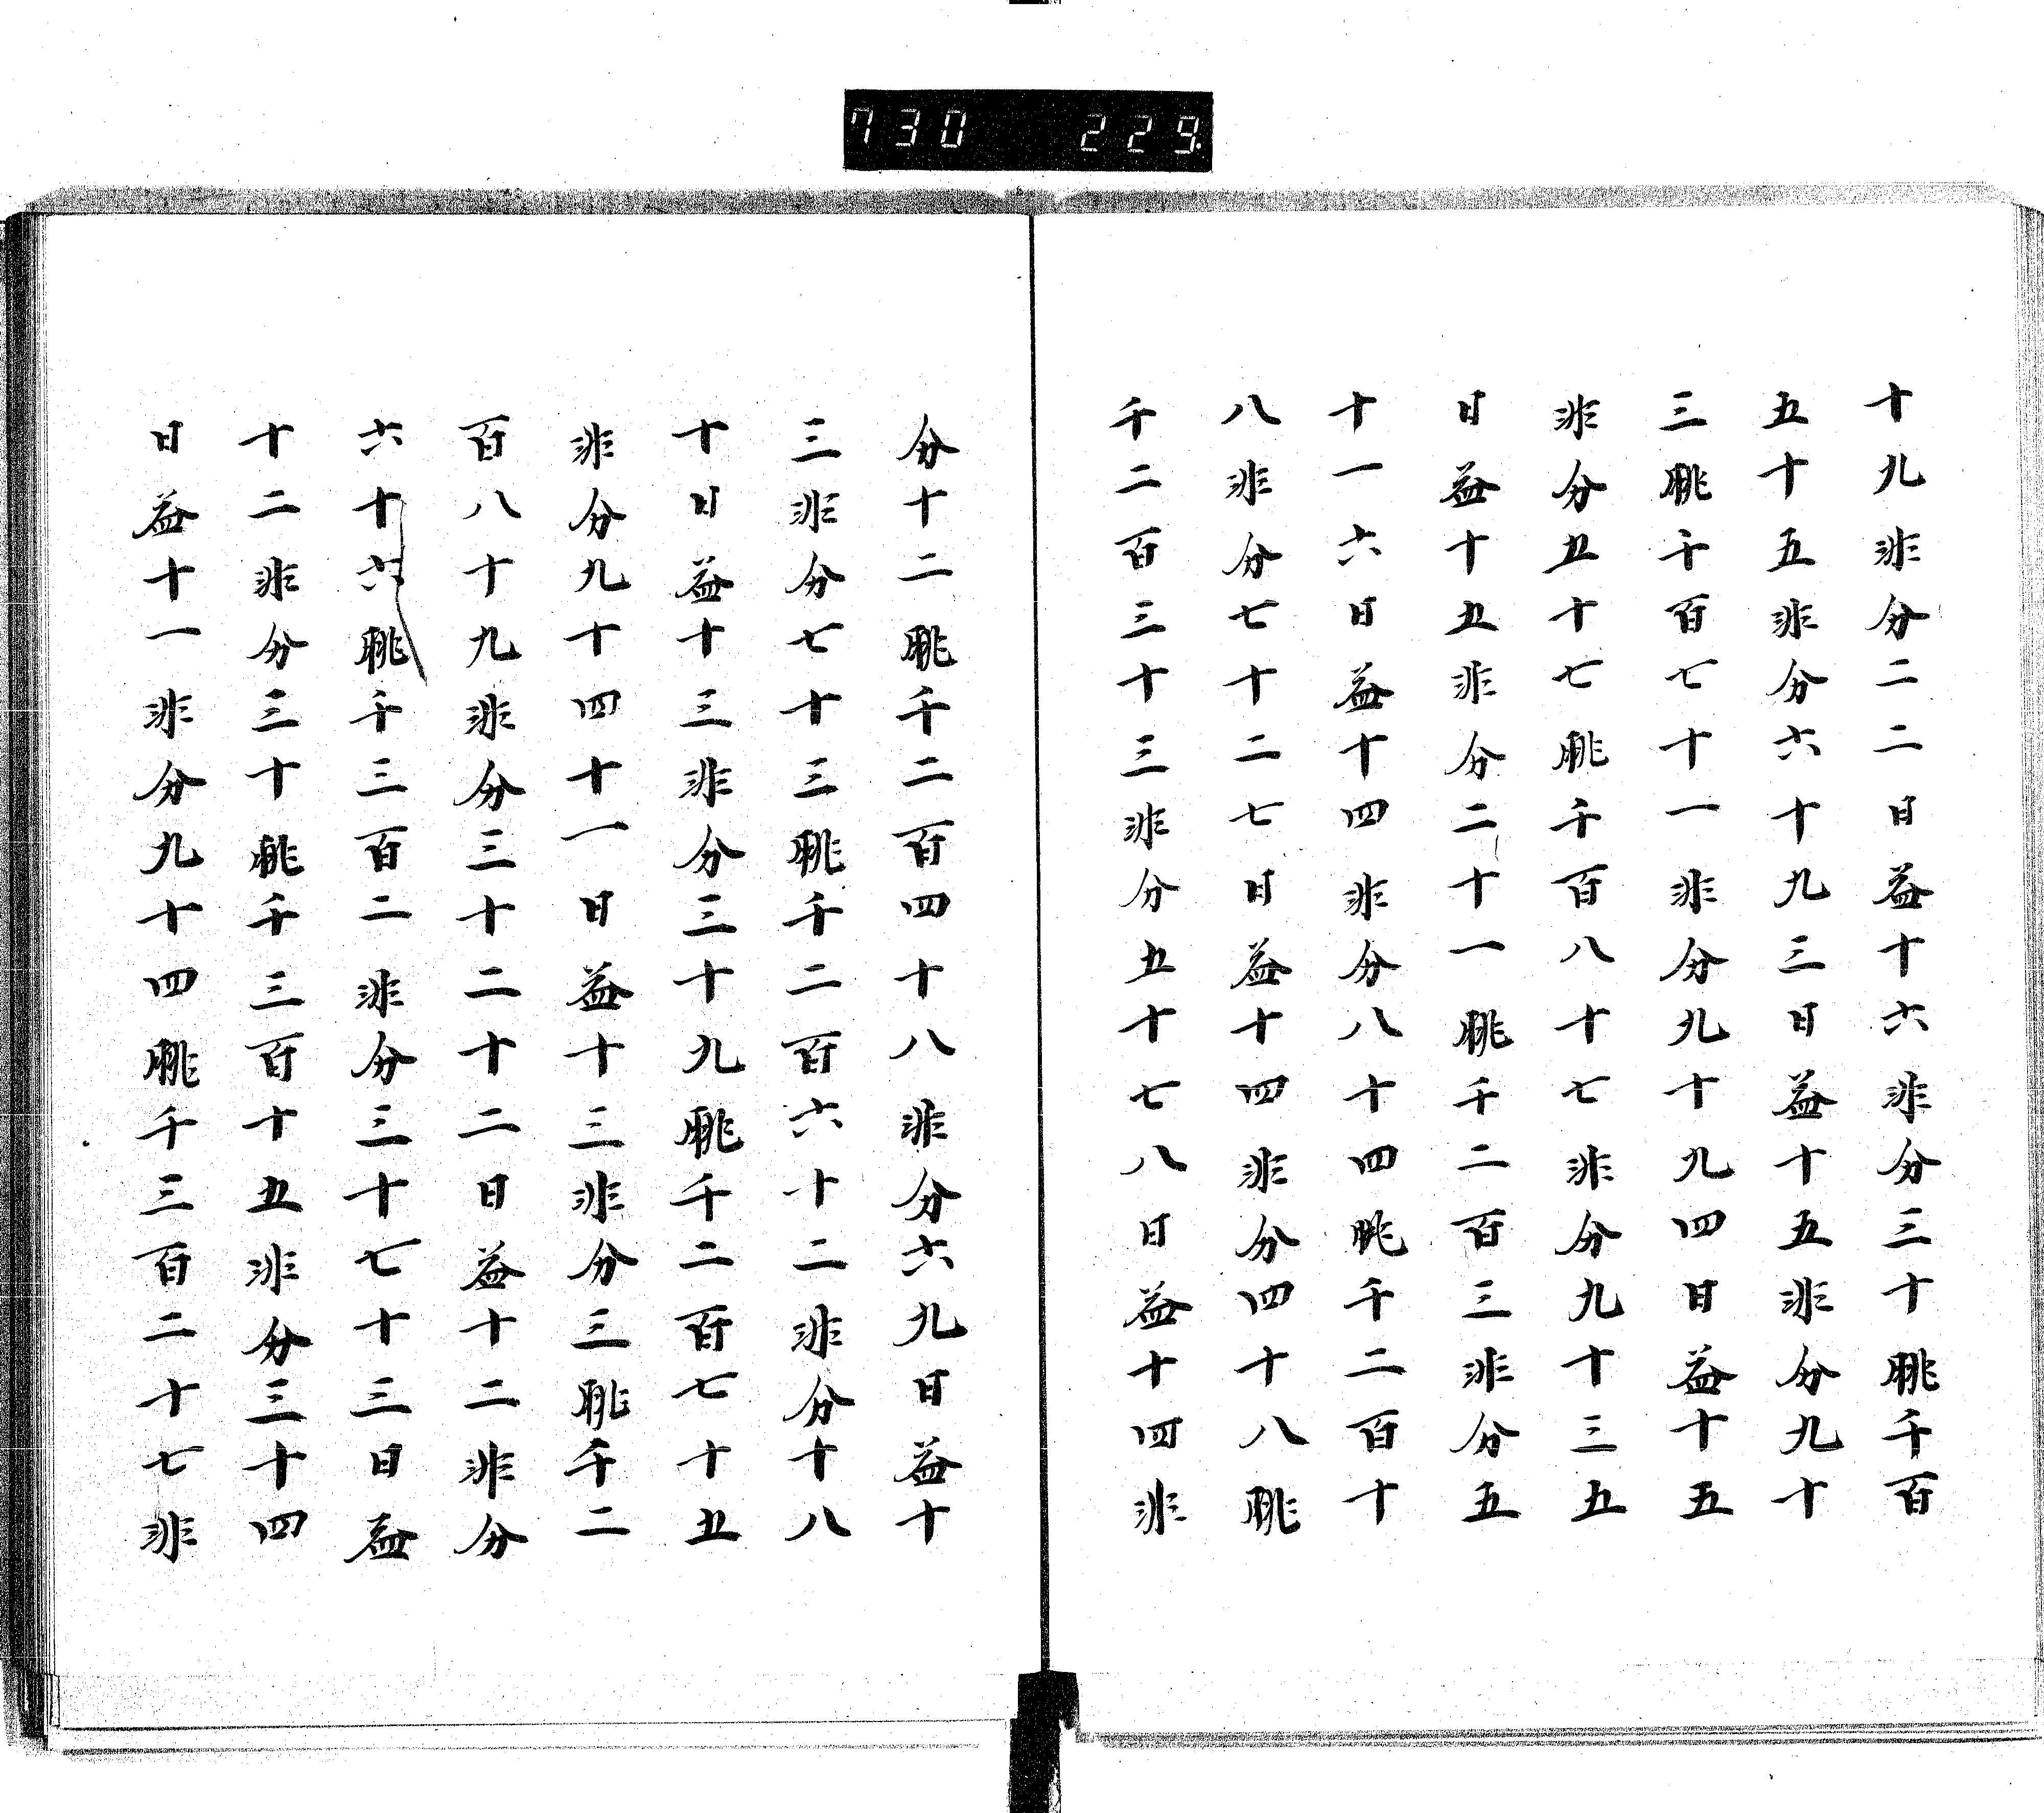 730 229
十九非分二二日益十六非分三十朓千百
五十五非分六十九三日益十五非分九十
三朓千百七十一非分九十九四日益十五
非分五十七朓千百八十七非分九十三五
日益十五非分二十一朓千二百三非分五
十一六日益十四非分八十四朓千二百十
八非分七十二七日益十四非分四十八朓
千二百三十三非分五十七八日益十四非
分十二朓千二百四十八非分六九日益十
三非分七十三朓千二百六十二非分十八
十日益十三非分三十九朓千二百七十五
非分九十四十一日益十三非分三朓千二
百八十九非分三十二十二日益十二非分
六十六朓千三百二非分三十七十三日益
十二非分三十朓千三百十五非分三十四
日益十一非分九十四朓千三百二十七非